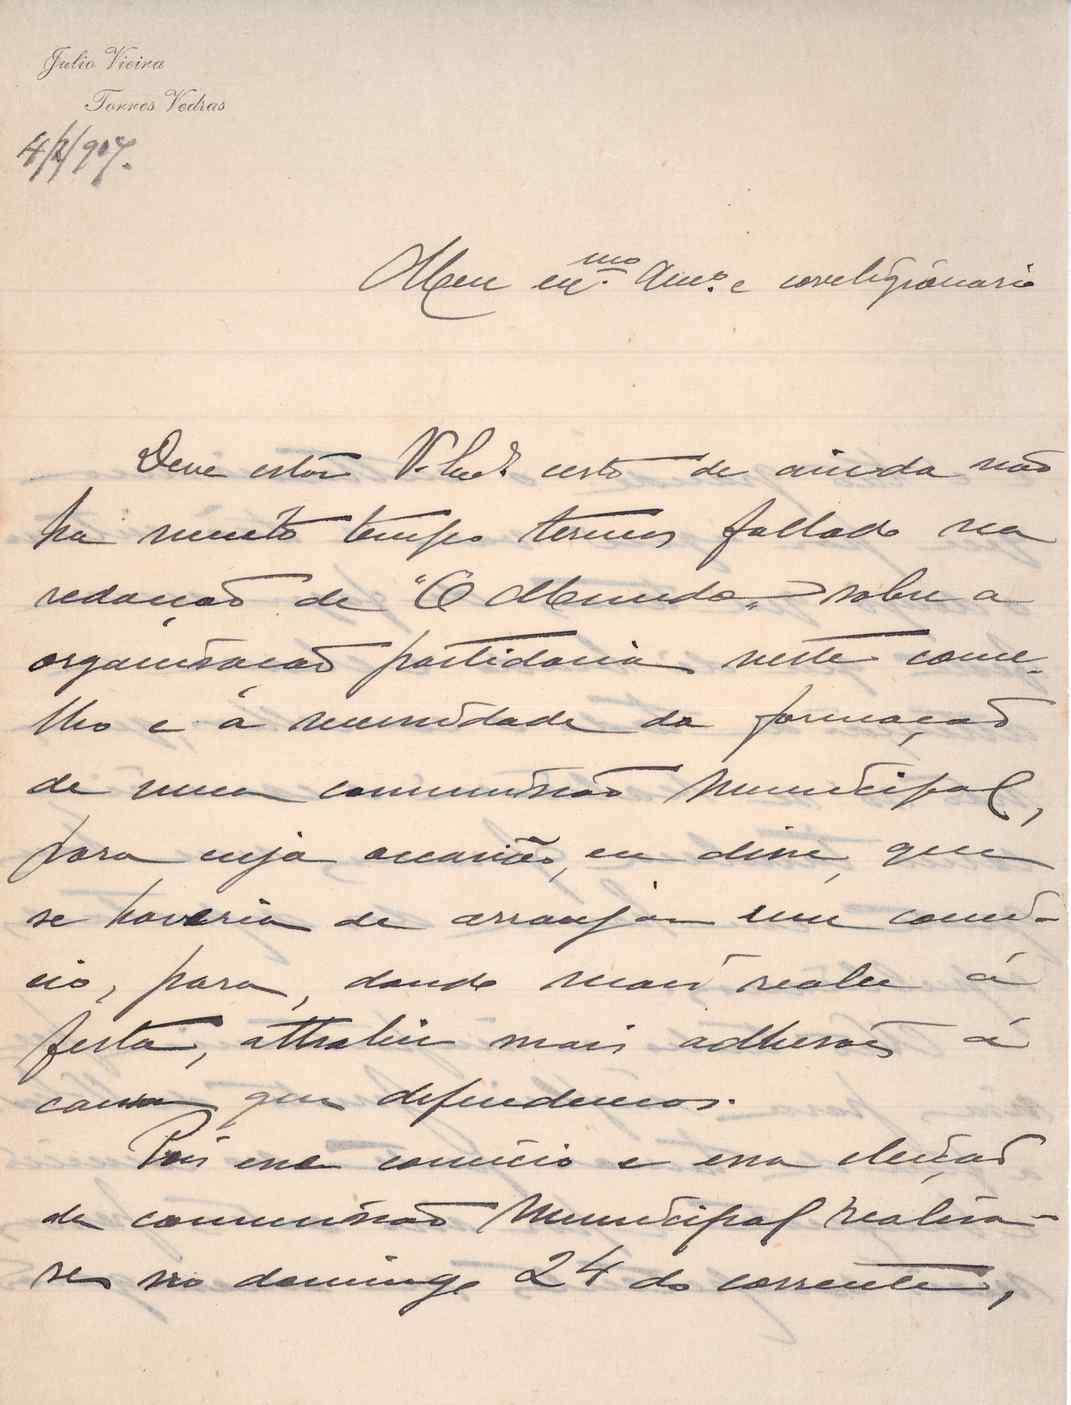 Julio Vieira
Torres Vedras
4/2/907.
Meu ex.mo Am.o e correligionario
Deve estar V. Ex.a certo de ainda não
ha muito tempo termos fallado na
redacção de "O Mundo" sobre a
organisação partidaria neste conce-
lho e á necessidade da formação
de uma commissão Municipal,
para cuja occasião, eu disse, que
se haveria de arranjar um comi-
cio, para, dando mais realce á
festa, attrahir mais adhesões á
causa que defendemos.
Pois esse comicio e essa eleição
da commissão Municipal realisa-
se no domingo 24 do corrente,